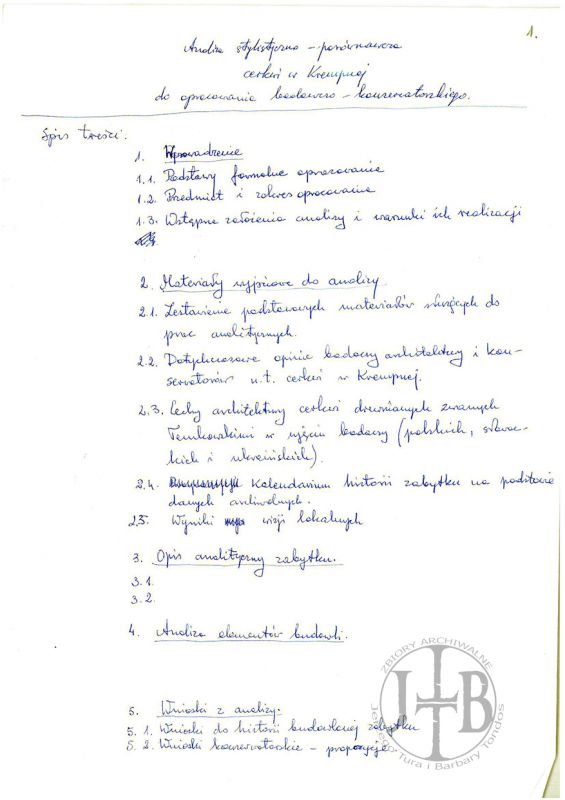 1.
Analiza stylistyczno – porównawcza
cerkwi w Krempnej
do opracowania badawczo – konserwatorskiego.
Spis treści:
1. Wprowadzenie
1.1. Podstawy formalne opracowania
1.2. Przedmiot i zakres opracowania
1.3. Wstępne założenia analizy i warunki ich realizacji
2. Materiały wyjściowe do analizy
2.1. Zestawienie podstawowych materiałów służących do
prac analitycznych.
2.2. Dotychczasowe opinie badaczy architektury i kon-
serwatorów n.t. cerkwi w Krempnej.
2.3. Cechy architektury cerkwi drewnianych zwanych
Łemkowskimi w ujęciu badaczy (polskich, słowac-
kich i ukraińskich).
2.4. Kalendarium historii zabytku na podstawie
danych archiwalnych.
2.5. Wyniki wizji lokalnych
3. Opis analityczny zabytku.
3.1.
3.2.
4. Analiza elementów budowli.
5. Wnioski z analizy.
5.1. Wnioski do historii budowlanej zabytku
5.2. Wnioski konserwatorskie – propozycje
ZBIORY ARCHIWALNE
JTB
Jerzego Tura i Barbary Tondos